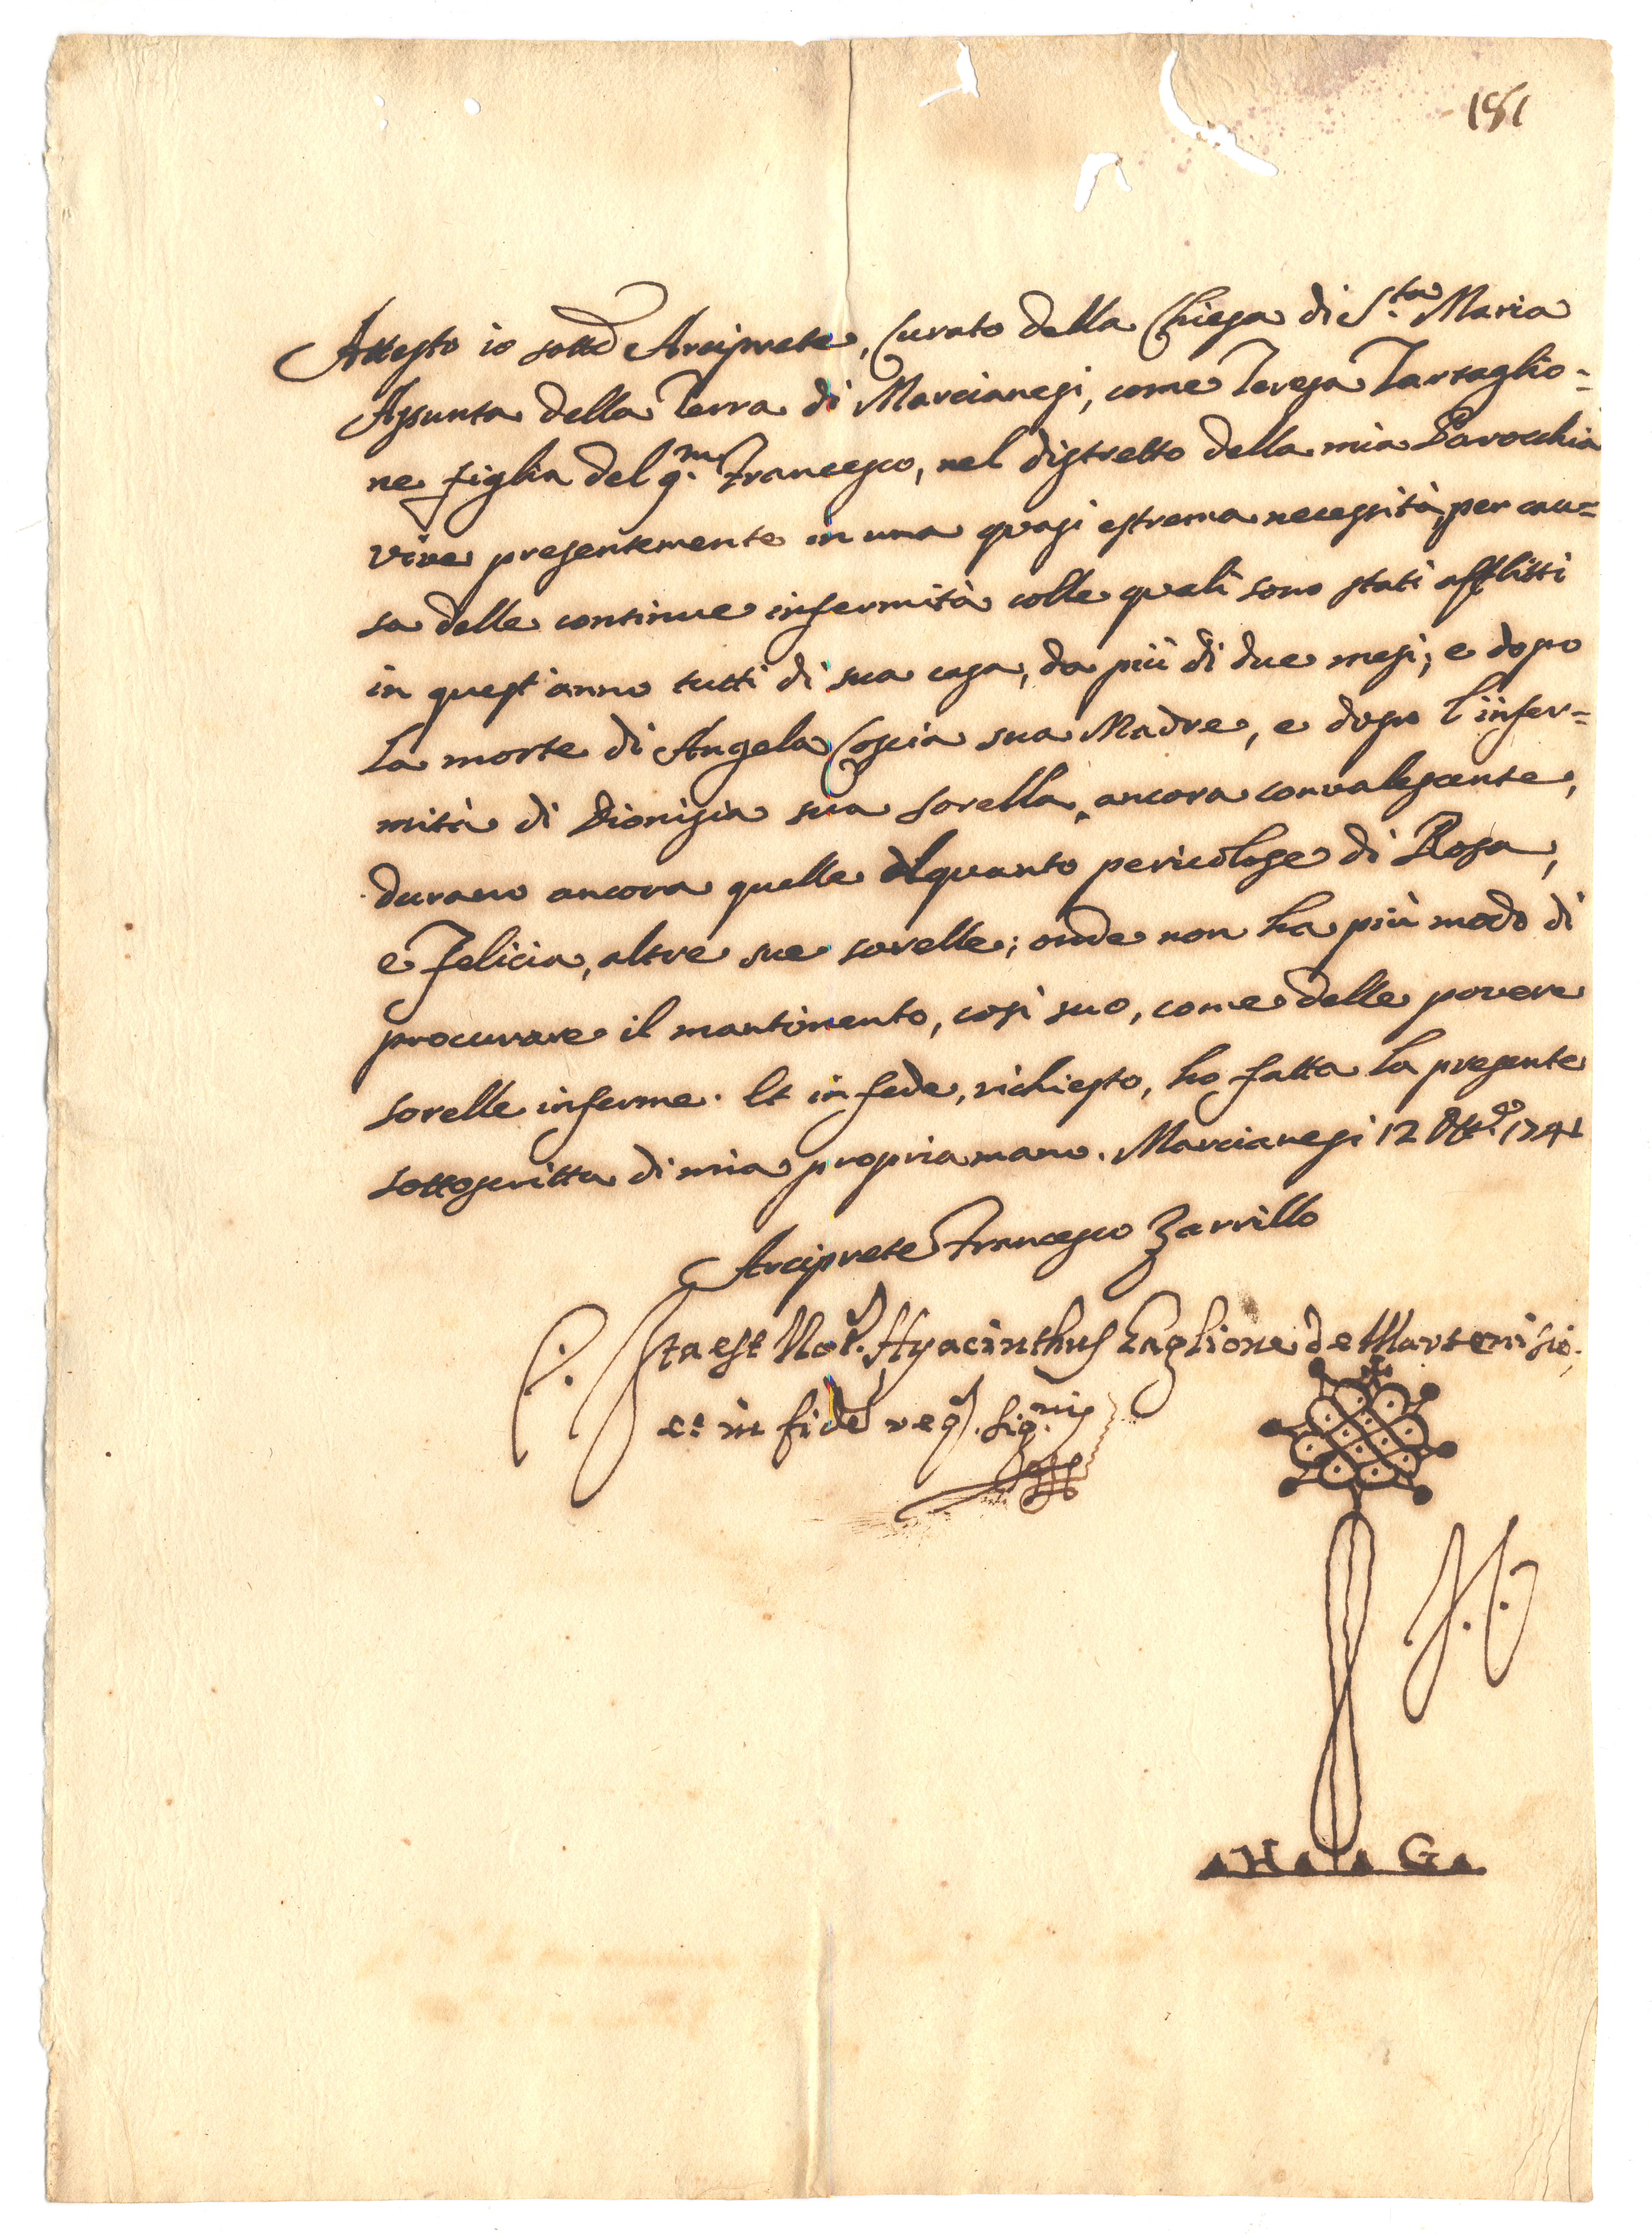 181
Attesto io sottō Arciprete, Curato della Chiesa di S.ta Maria
Assunta della Terra di Marcianesi, come Teresa Tartaglio=
ne figlia del q.m Francesco, nel distretto della mia Parocchia
vive presentemente in una quasi estrema necessità, per cau=
sa delle continue infermità colle quali sono stati afflitti
in quest'anno tutti di sua casa, da più di due mesi; e dopo
la morte di Angela Coscia sua Madre, e dopo l'infer=
mità di Dionisia sua sorella, ancora convalescente,
durano ancora quelle alquanto pericolose di Rosa,
e Felicia, altre sue sorelle; onde non ha più modo di
procurare il mantimento, così suo, come delle povere
sorelle inferme. Et in fede, richiesto, ho fatta la presente
sottoscritta di mia propria mano. Marcianesi 12 Ott.e 1741
Arciprete Francesco Zarrillo
Ita est Not. Hyacinthus Taglione de Martenisio
et in fidē req. sig.vi
H G